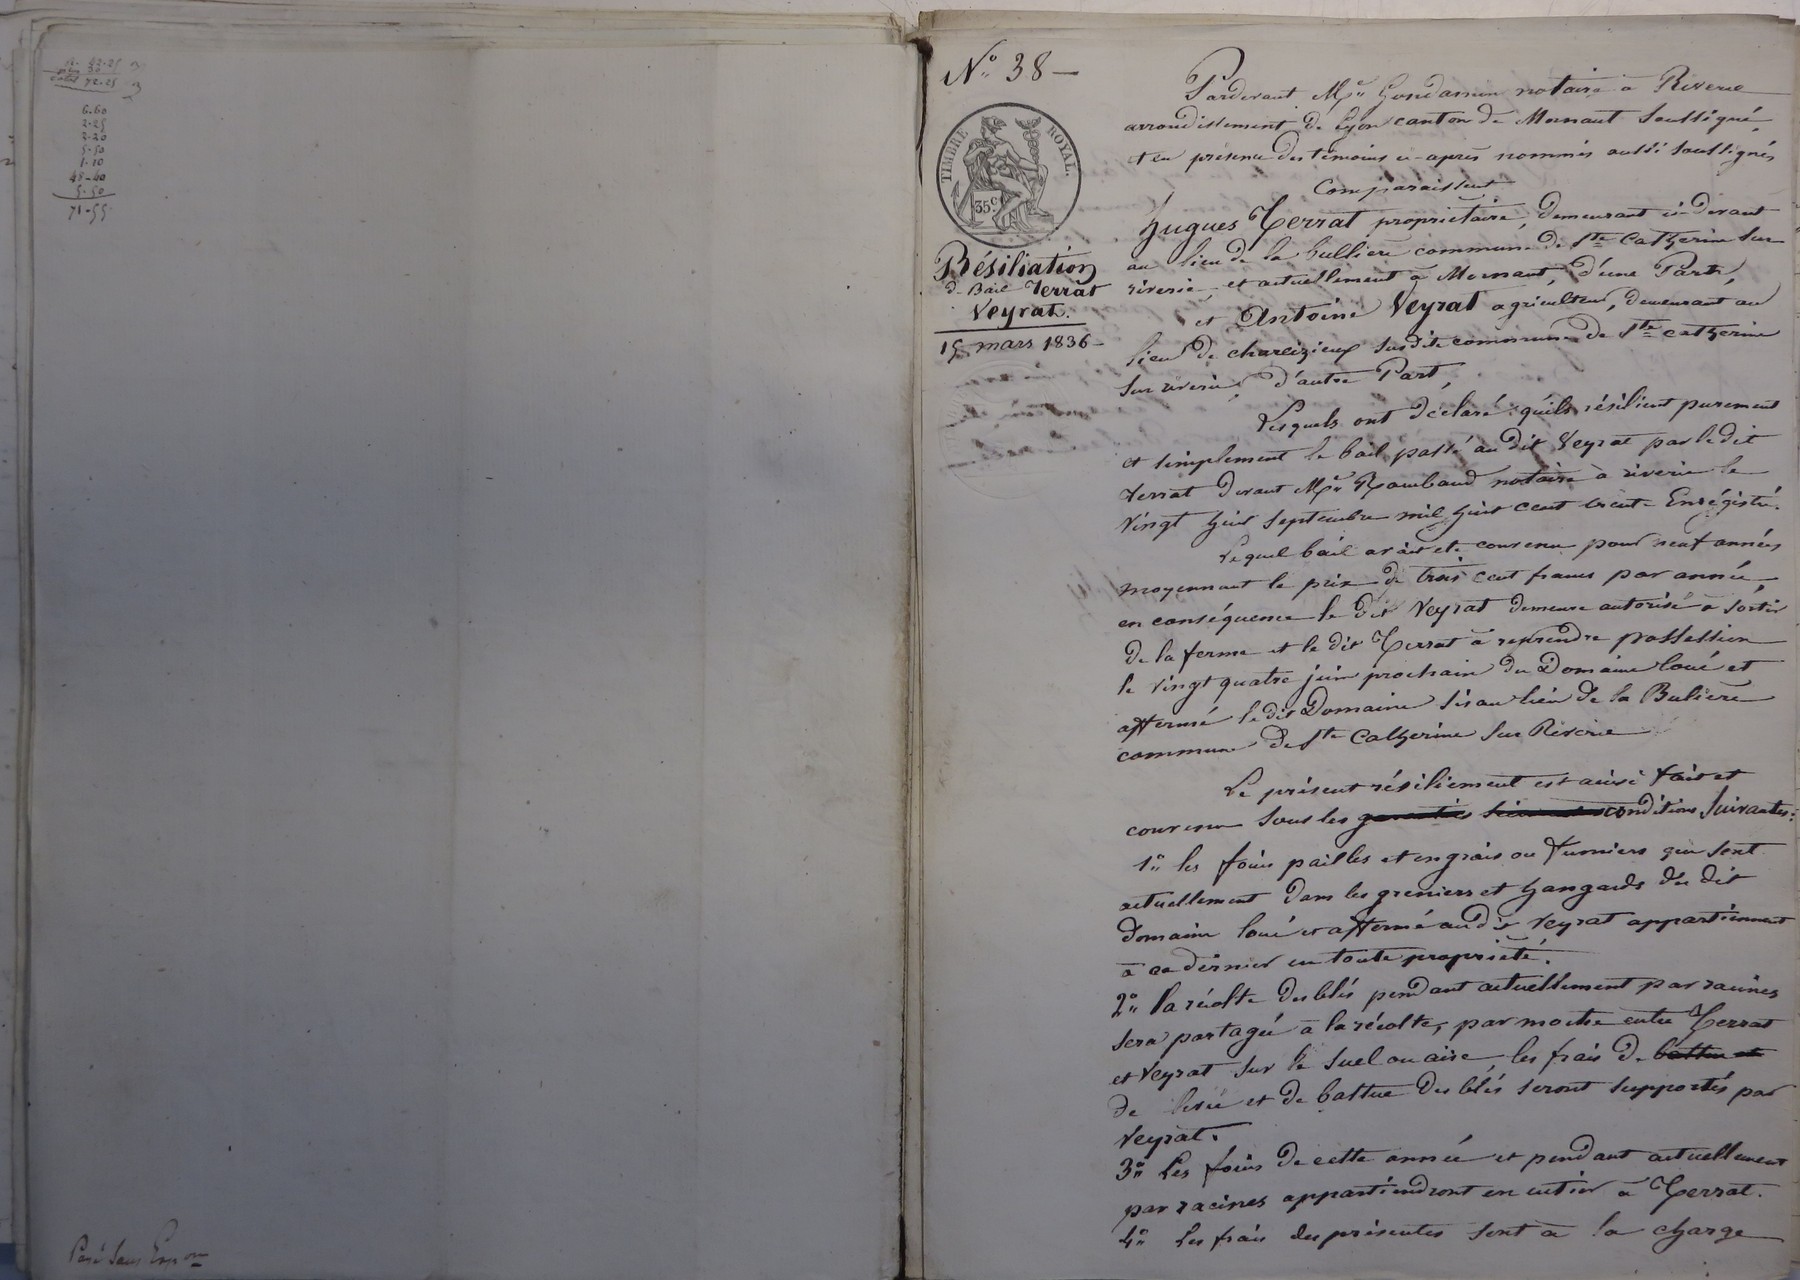 42-25
30
72-25
6.60
2-25
2-20
5-50
1-10
48-40
5-50
71-55
N° 38 -
TIMBRE ROYAL.
35 c.
Résiliation
de Bail Terrat
Veyrat.
15 mars 1836-
Pardevant Me Gondamin notaire à Riverie
arrondissement de Lyon canton de Mornant soussigné,
et en présence des témoins ci-après nommés aussi soussignés
Comparaissent
hugues Terrat propriétaire, demeurant ci-devant
au lieu de la bullière commune de Ste Catherine sur
riverie, et actuellement à Mornant d'une Part,
et Antoine Veyrat agriculteur, demeurant au
lieu de charizieux susdite commune de Ste catherine
sur riverie, d'autre Part,
Lesquels ont déclaré qu'ils résilient purement
et simplement le bail passé au dit Veyrat par le dit
Terrat devant Me Rambaud notaire à riverie le
vingt huit septembre mil huit cent trente Enrégistré.
Lequel bail avait été convenu pour neuf années
moyennant le prix de trois cent francs par année,
en conséquence le dit Veyrat demeure autorisé à sortir
de la ferme et le dit Terrat à reprendre possession
le vingt quatre juin prochain du Domaine loué et
affermé le dit Domaine sis au lieu de la Bulière
commune de Ste Catherine sur Riverie
Le présent résiliement est ainsi fait et
convenu sous les conditions suivantes:
1° les foins pailles et engrais ou fumiers qui sont
actuellement dans les greniers et hangards du dit
Domaine loué et affermé au dit Veyrat appartiennent
à ce dernier en toute propriété.
2° la récolte des blés pendant actuellement par racines
sera partagée à la récolte, par moitié entre Terrat
et Veyrat sur le suel ou aire, les frais de battue et
de levée et de battue des blés seront supportés par
Veyrat.
3° Les foins de cette année et pendant actuellement
par racines appartiendront en entier à Terrat.
4° Les frais des présentes sont à la charge